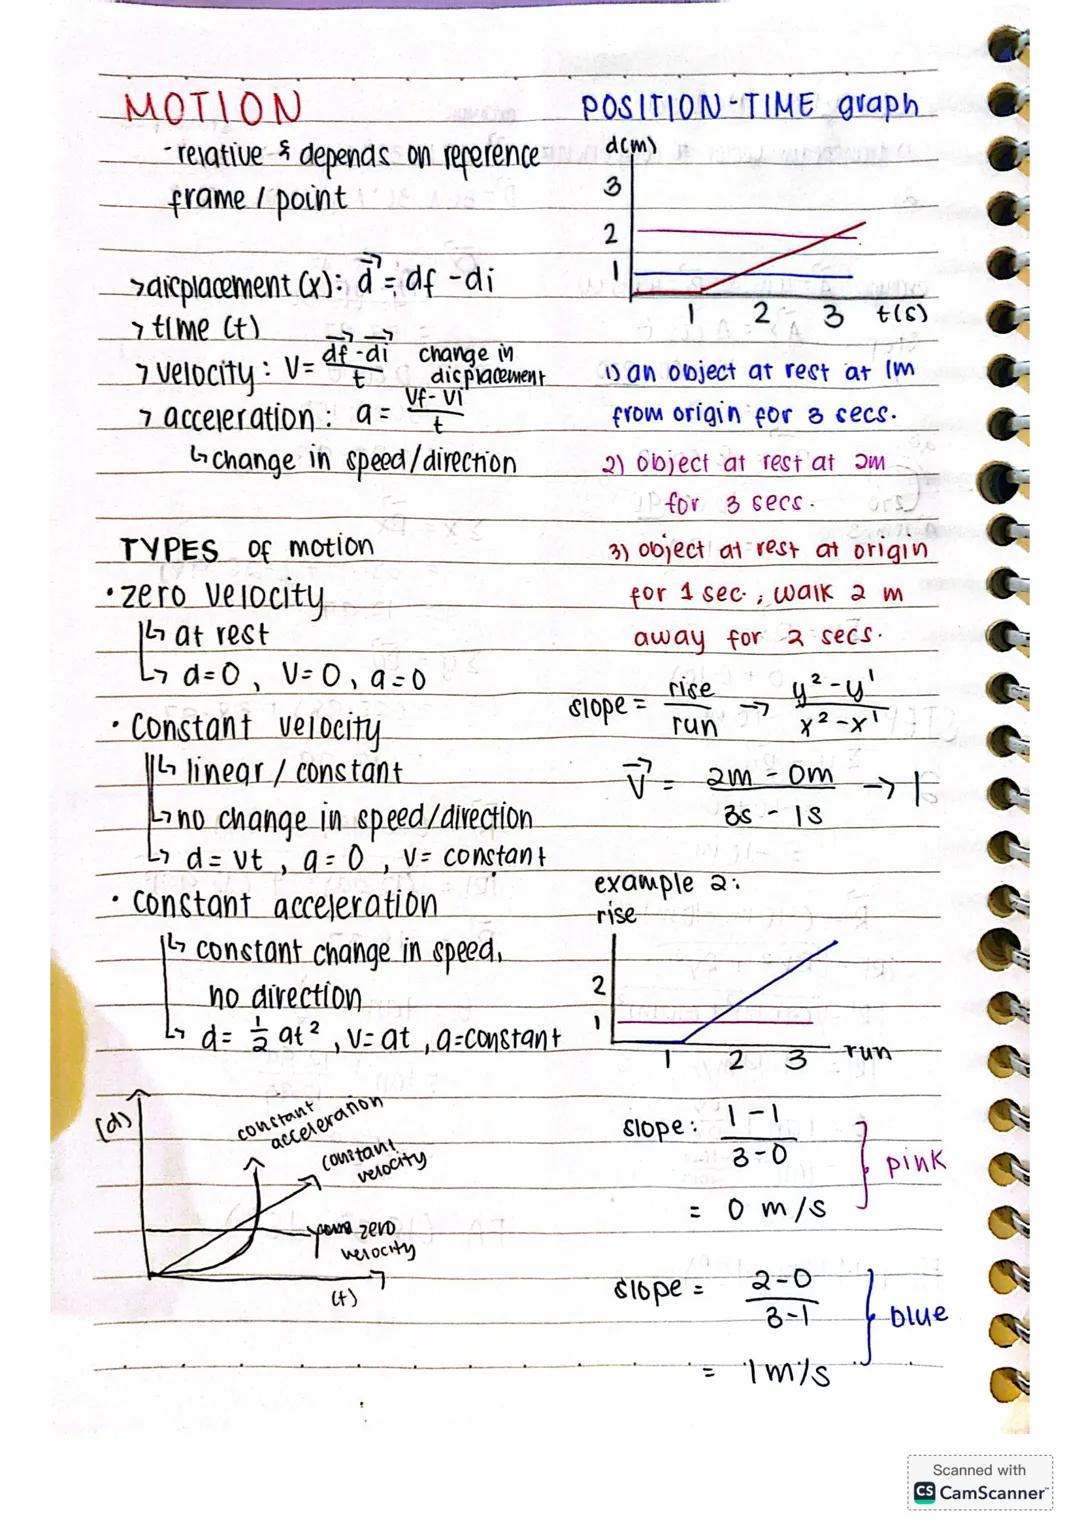 MOTION
-relative & depends on reference
frame / point
>displacement (x): d = df - di
> time (t)
> velocity: V = df - di / t change in displacement
> acceleration: a = Vf - Vi / t
↳ change in speed/direction
TYPES of motion
• zero velocity
↳ at rest
↳ d=0, V=0, a=0
• constant velocity
↳ linear / constant
↳ no change in speed/direction
↳ d = vt, a = 0, v = constant
• constant acceleration
↳ constant change in speed,
no direction
↳ d = 1/2 at², v = at, a = constant
(d)
constant
acceleration
constant
velocity
zero
velocity
(t)
POSITION-TIME graph
d(m)
3
2
1
1 2 3 t(s)
1) an object at rest at 1m
from origin for 3 secs.
2) object at rest at 2m
for 3 secs.
3) object at rest at origin
for 1 sec, walk 2 m
away for 2 secs.
slope = rise / run → y² - y¹ / x² - x¹
V = 2m - 0m / 3s - 1s → 1
example 2:
rise
2
1
1 2 3 run
slope: 1-1 / 3-0
= 0 m/s
pink
slope = 2-0 / 3-1
= 1 m/s
blue
Scanned with
CS CamScanner